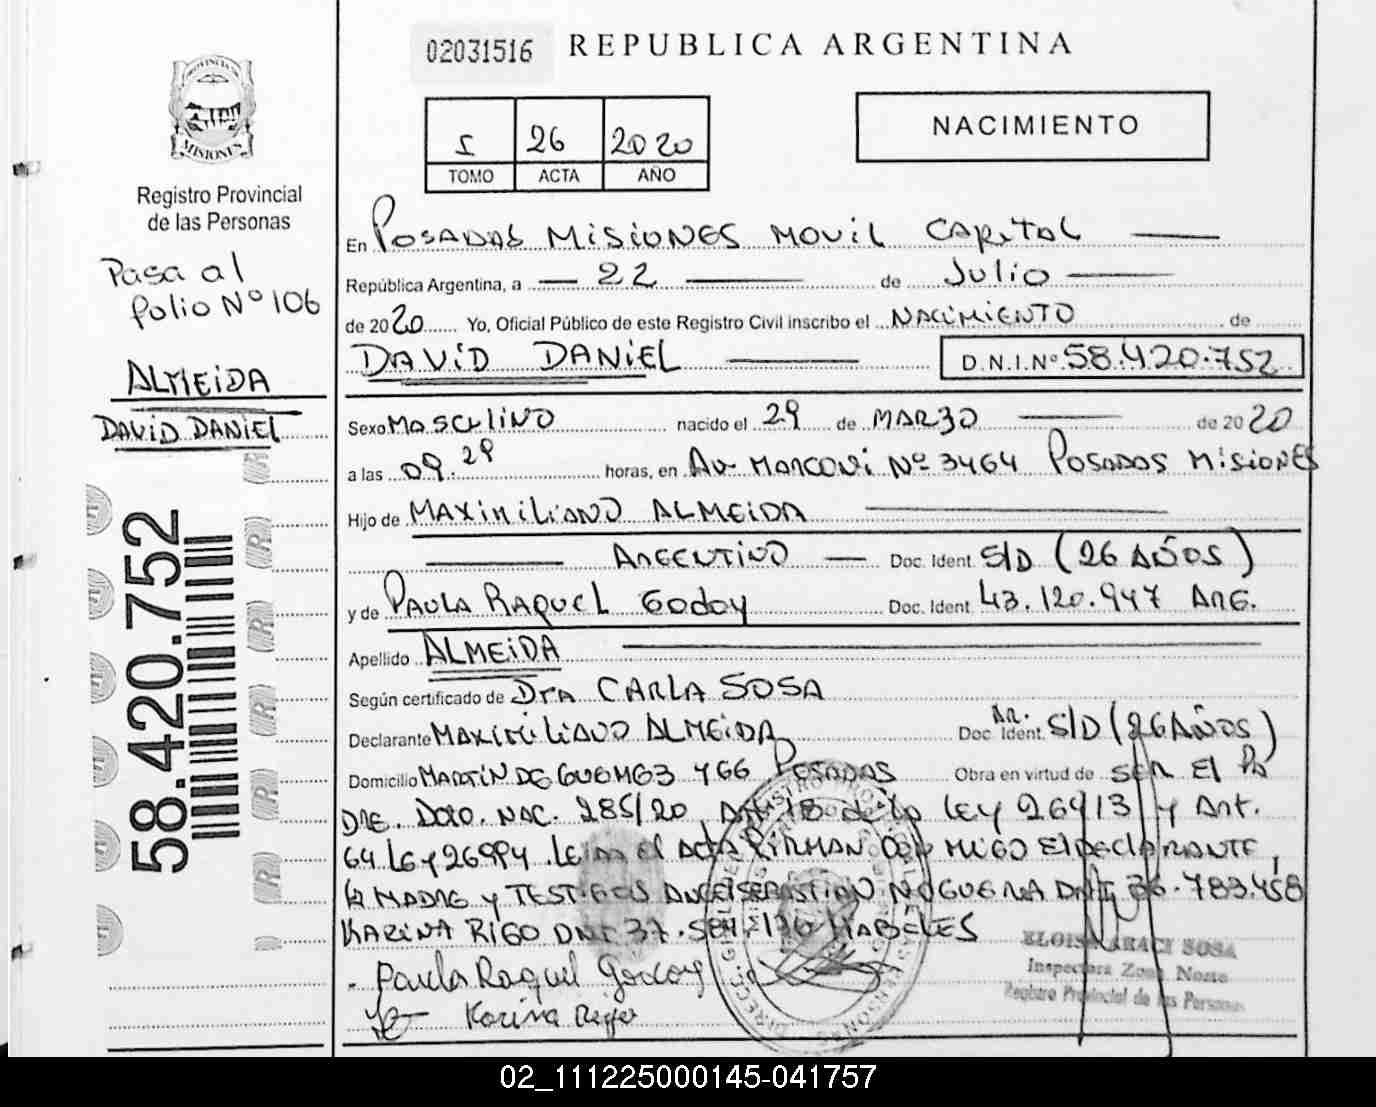 02031516 REPUBLICA ARGENTINA
PROVINCIA DE
MISIONES
I 26 2020
TOMO ACTA AÑO
NACIMIENTO
Registro Provincial
de las Personas
Pasa al
folio Nº 106
ALMEIDA
DAVID DANIEL
58.420.752
En POSADAS MISIONES MOVIL CAPITAL
República Argentina, a 22 de Julio
de 2020 Yo, Oficial Público de este Registro Civil inscribo el NACIMIENTO de
DAVID DANIEL D.N.I.Nº 58.420.752
Sexo MASCULINO nacido el 29 de MARZO de 2020
a las 09.29 horas, en Av. MARCONI Nº 3464 POSADAS MISIONES
Hijo de MAXIMILIANO ALMEIDA
ARGENTINO Doc. Ident. S/D (26 AÑOS)
y de PAULA RAQUEL Godoy Doc. Ident. 43.120.947 ARG.
Apellido ALMEIDA
Según certificado de DRA CARLA SOSA
Declarante MAXIMILIANO ALMEIDA Doc. Ident. AR. S/D (26 AÑOS)
Domicilio MARTIN DE GUEMES 466 POSADAS Obra en virtud de SER El PA
DRE. DCTO. NAC. 285/20, Art. 18 de la LEY 26413 y Art.
64 LEY 26994. LEIDA El ACTA FIRMAN CON MIGO El DECLARANTE,
LA MADRE y TESTIGOS ANGEL SEBASTIAN NOGUERA DNI 36.783.458
KARINA RIGO DNI 37. HABILES
Paula Raquel Godoy
Karina Rigo
ELOISA ARACI SOSA
Inspectora Zona Norte
Registro Provincial de las Personas
02_111225000145-041757